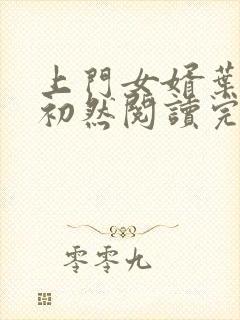 上門女婿葉
初然閱讀完
零零九